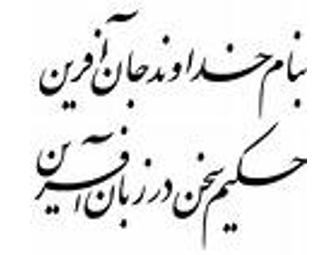 بنام خداوند جان آفرین
حکیم سخن در زبان آفرین